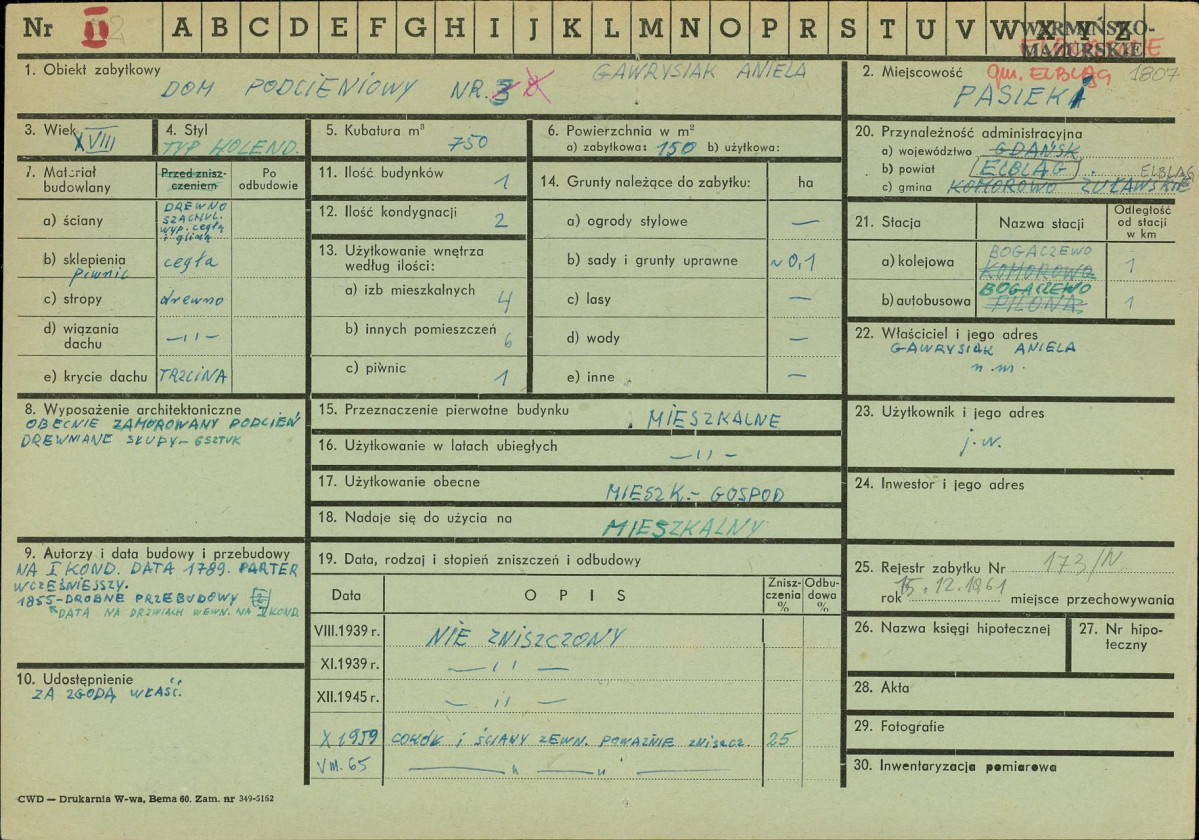 Nr II 2 A B C D E F G H I J K L M N O P R S T U V W X Y Z
WARMIŃSKO-
MAZURSKIE
1. Obiekt zabytkowy
DOM PODCIENIOWY NR. 3
GAWRYSIAK ANIELA
2. Miejscowość gm. ELBLĄG 1807
PASIEKI
3. Wiek XVIII
4. Styl
TYP HOLEND.
5. Kubatura m³
750
6. Powierzchnia w m²
a) zabytkowa: 150 b) użytkowa:
20. Przynależność administracyjna
a) województwo GDAŃSK
b) powiat ELBLĄG
c) gmina KOMOROWO ŻUŁAWSKIE
ELBLĄG
7. Materiał budowlany
Przed zniszczeniem
Po odbudowie
a) ściany
DREWNO
SZACHUL.
WYP. cegłą
i gliną
b) sklepienia cegła
piwnic
c) stropy drewno
d) wiązania dachu — 11 —
e) krycie dachu TRZCINA
11. Ilość budynków 1
12. Ilość kondygnacji 2
13. Użytkowanie wnętrza według ilości:
a) izb mieszkalnych 4
b) innych pomieszczeń 6
c) piwnic 1
14. Grunty należące do zabytku: ha
a) ogrody stylowe —
b) sady i grunty uprawne ~0,1
c) lasy —
d) wody —
e) inne —
21. Stacja Nazwa stacji Odległość od stacji w km
a) kolejowa BOGACZEWO 1
KOMOROWO
b) autobusowa BOGACZEWO 1
PILONA
22. Właściciel i jego adres
GAWRYSIAK ANIELA
n.m.
8. Wyposażenie architektoniczne
OBECNIE ZAMUROWANY PODCIEŃ
DREWNIANE SŁUPY – 6 SZTUK
15. Przeznaczenie pierwotne budynku MIESZKALNE
16. Użytkowanie w latach ubiegłych — 11 —
17. Użytkowanie obecne MIESZK. - GOSPOD
18. Nadaje się do użycia na MIESZKALNY
23. Użytkownik i jego adres
j.w.
24. Inwestor i jego adres
9. Autorzy i data budowy i przebudowy
NA I KOND. DATA 1789. PARTER
WCZEŚNIEJSZY.
1855 - DROBNE PRZEBUDOWY
DATA NA DRZWIACH WEWN. NA II KOND.
10. Udostępnienie
ZA ZGODĄ WŁAŚĆ.
19. Data, rodzaj i stopień zniszczeń i odbudowy
Data OPIS Zniszczenia % Odbudowa %
VIII.1939 r. NIE ZNISZCZONY
XI.1939 r. — 11 —
XII.1945 r. — 11 —
X 1959 COKÓŁ i ŚCIANY ZEWN. POWAŻNIE ZNISZCZ. 25
VIII. 65 — " — " —
25. Rejestr zabytku Nr 173/N
rok 15.12.1961 miejsce przechowywania
26. Nazwa księgi hipotecznej
27. Nr hipoteczny
28. Akta
29. Fotografie
30. Inwentaryzacja pomiarowa
CWD — Drukarnia W-wa, Bema 60. Zam. nr 349-5162